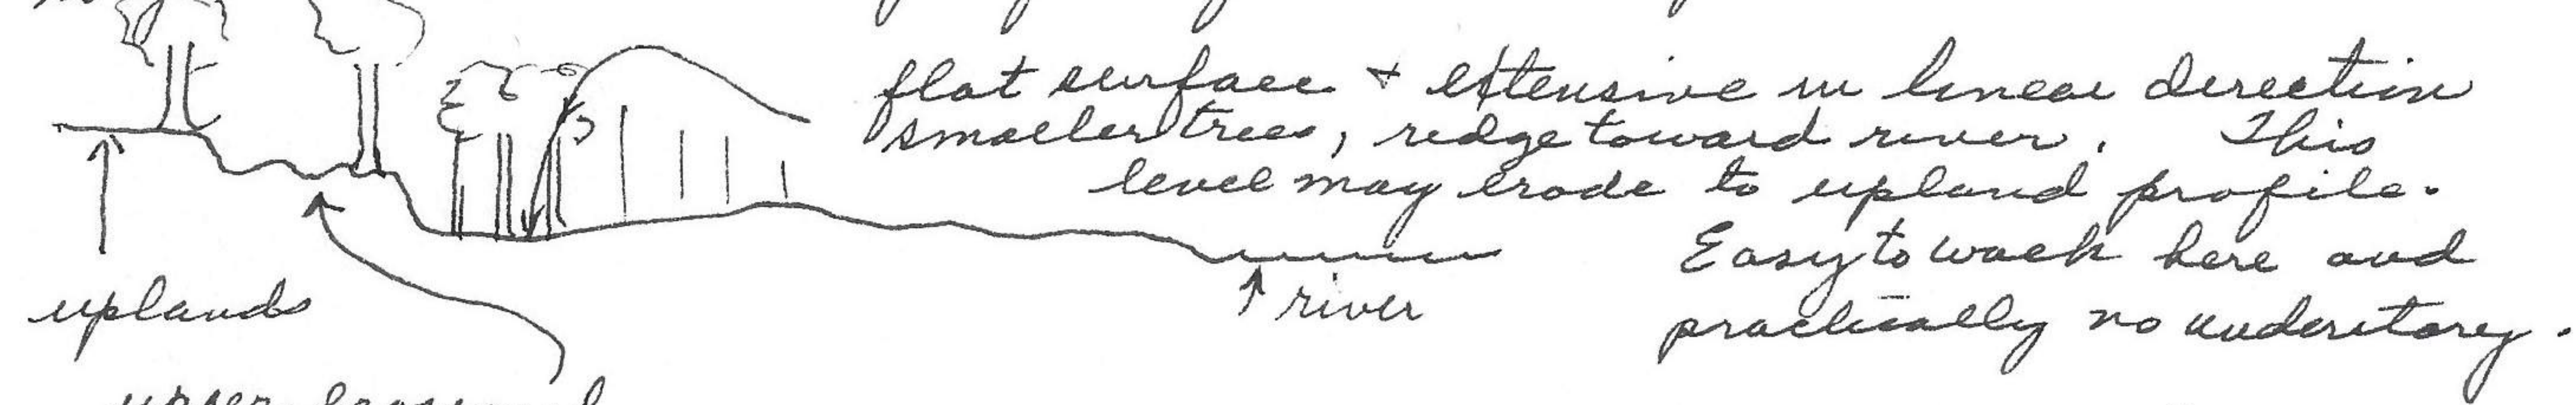 flat surface + extensive in linear direction
smaller trees, ridge toward river. This
level may erode to upland profile.
Easy to walk here and
practically no understory.
uplands
river
upper